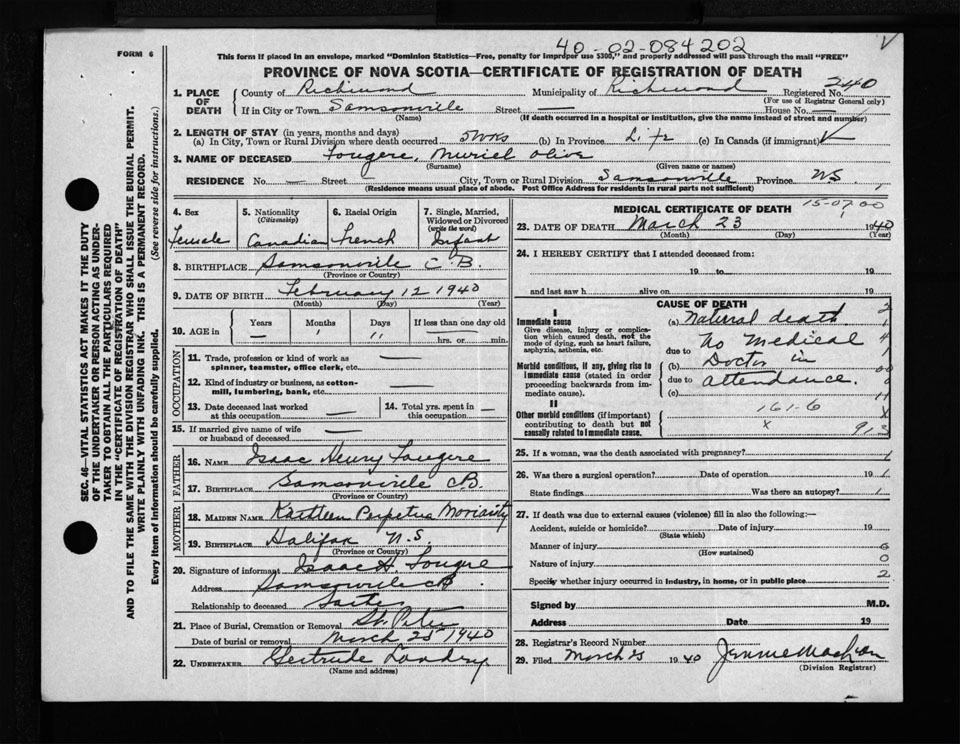 FORM 6
40-02-084202
V
This form if placed in an envelope, marked "Dominion Statistics—Free, penalty for improper use $300," and properly addressed will pass through the mail "FREE"
PROVINCE OF NOVA SCOTIA—CERTIFICATE OF REGISTRATION OF DEATH
1. PLACE OF DEATH
County of Richmond Municipality of Richmond Registered No. 240
(For use of Registrar General only)
If in City or Town Samsonville Street — House No. —
(Name) (If death occurred in a hospital or institution, give the name instead of street and number)
2. LENGTH OF STAY (in years, months and days)
(a) In City, Town or Rural Division where death occurred 5 wks (b) In Province Life (c) In Canada (if immigrant)
3. NAME OF DECEASED Fougere, Muriel Olive
(Surname) (Given name or names)
RESIDENCE No. — Street City, Town or Rural Division Samsonville Province NS
(Residence means usual place of abode. Post Office Address for residents in rural parts not sufficient)
4. Sex
Female
5. Nationality
(Citizenship)
Canadian
6. Racial Origin
French
7. Single, Married, Widowed or Divorced
(write the word)
Infant
8. BIRTHPLACE Samsonville C.B.
(Province or Country)
9. DATE OF BIRTH February 12 1940
(Month) (Day) (Year)
10. AGE in
Years Months Days If less than one day old
— 1 11 hrs. or min.
OCCUPATION
11. Trade, profession or kind of work as spinner, teamster, office clerk, etc. —
12. Kind of industry or business, as cotton-mill, lumbering, bank, etc. —
13. Date deceased last worked at this occupation —
14. Total yrs. spent in this occupation —
15. If married give name of wife or husband of deceased —
FATHER
16. NAME Isaac Henry Fougere
17. BIRTHPLACE Samsonville C.B.
(Province or Country)
MOTHER
18. MAIDEN NAME Kathleen Perpetua Moriarity
19. BIRTHPLACE Halifax N.S.
(Province or Country)
20. Signature of informant Isaac H. Fougre
Address Samsonville CB
Relationship to deceased
21. Place of Burial, Cremation or Removal St. Peter
Date of burial or removal March 25 1940
22. UNDERTAKER Gertrude Landry
(Name and address)
MEDICAL CERTIFICATE OF DEATH
15-07.00
23. DATE OF DEATH March 23 1940
(Month) (Day) (Year)
24. I HEREBY CERTIFY that I attended deceased from:
19 to 19
and last saw h alive on 19
CAUSE OF DEATH
I
Immediate cause
Give disease, injury or complication which caused death, not the mode of dying, such as heart failure, asphyxia, asthenia, etc.
(a) Natural death.
due to No Medical
Morbid conditions, if any, giving rise to immediate cause (stated in order proceeding backwards from immediate cause).
(b) Doctor in
due to attendance.
(c)
II
Other morbid conditions (if important) contributing to death but not causally related to immediate cause.
161-6
x
913
25. If a woman, was the death associated with pregnancy?
26. Was there a surgical operation? Date of operation 19
State findings Was there an autopsy?
27. If death was due to external causes (violence) fill in also the following:—
Accident, suicide or homicide? Date of injury 19
(State which)
Manner of injury 6
(How sustained)
Nature of injury 0
Specify whether injury occurred in industry, in home, or in public place 2
Signed by M.D.
Address Date 19
28. Registrar's Record Number
29. Filed March 25 1940
(Division Registrar)
SEC. 46—VITAL STATISTICS ACT MAKES IT THE DUTY
OF THE UNDERTAKER OR PERSON ACTING AS UNDER-
TAKER TO OBTAIN ALL THE PARTICULARS REQUIRED
IN THE "CERTIFICATE OF REGISTRATION OF DEATH"
AND TO FILE THE SAME WITH THE DIVISION REGISTRAR WHO SHALL ISSUE THE BURIAL PERMIT.
WRITE PLAINLY WITH UNFADING INK. THIS IS A PERMANENT RECORD.
Every item of information should be carefully supplied. (See reverse side for instructions.)